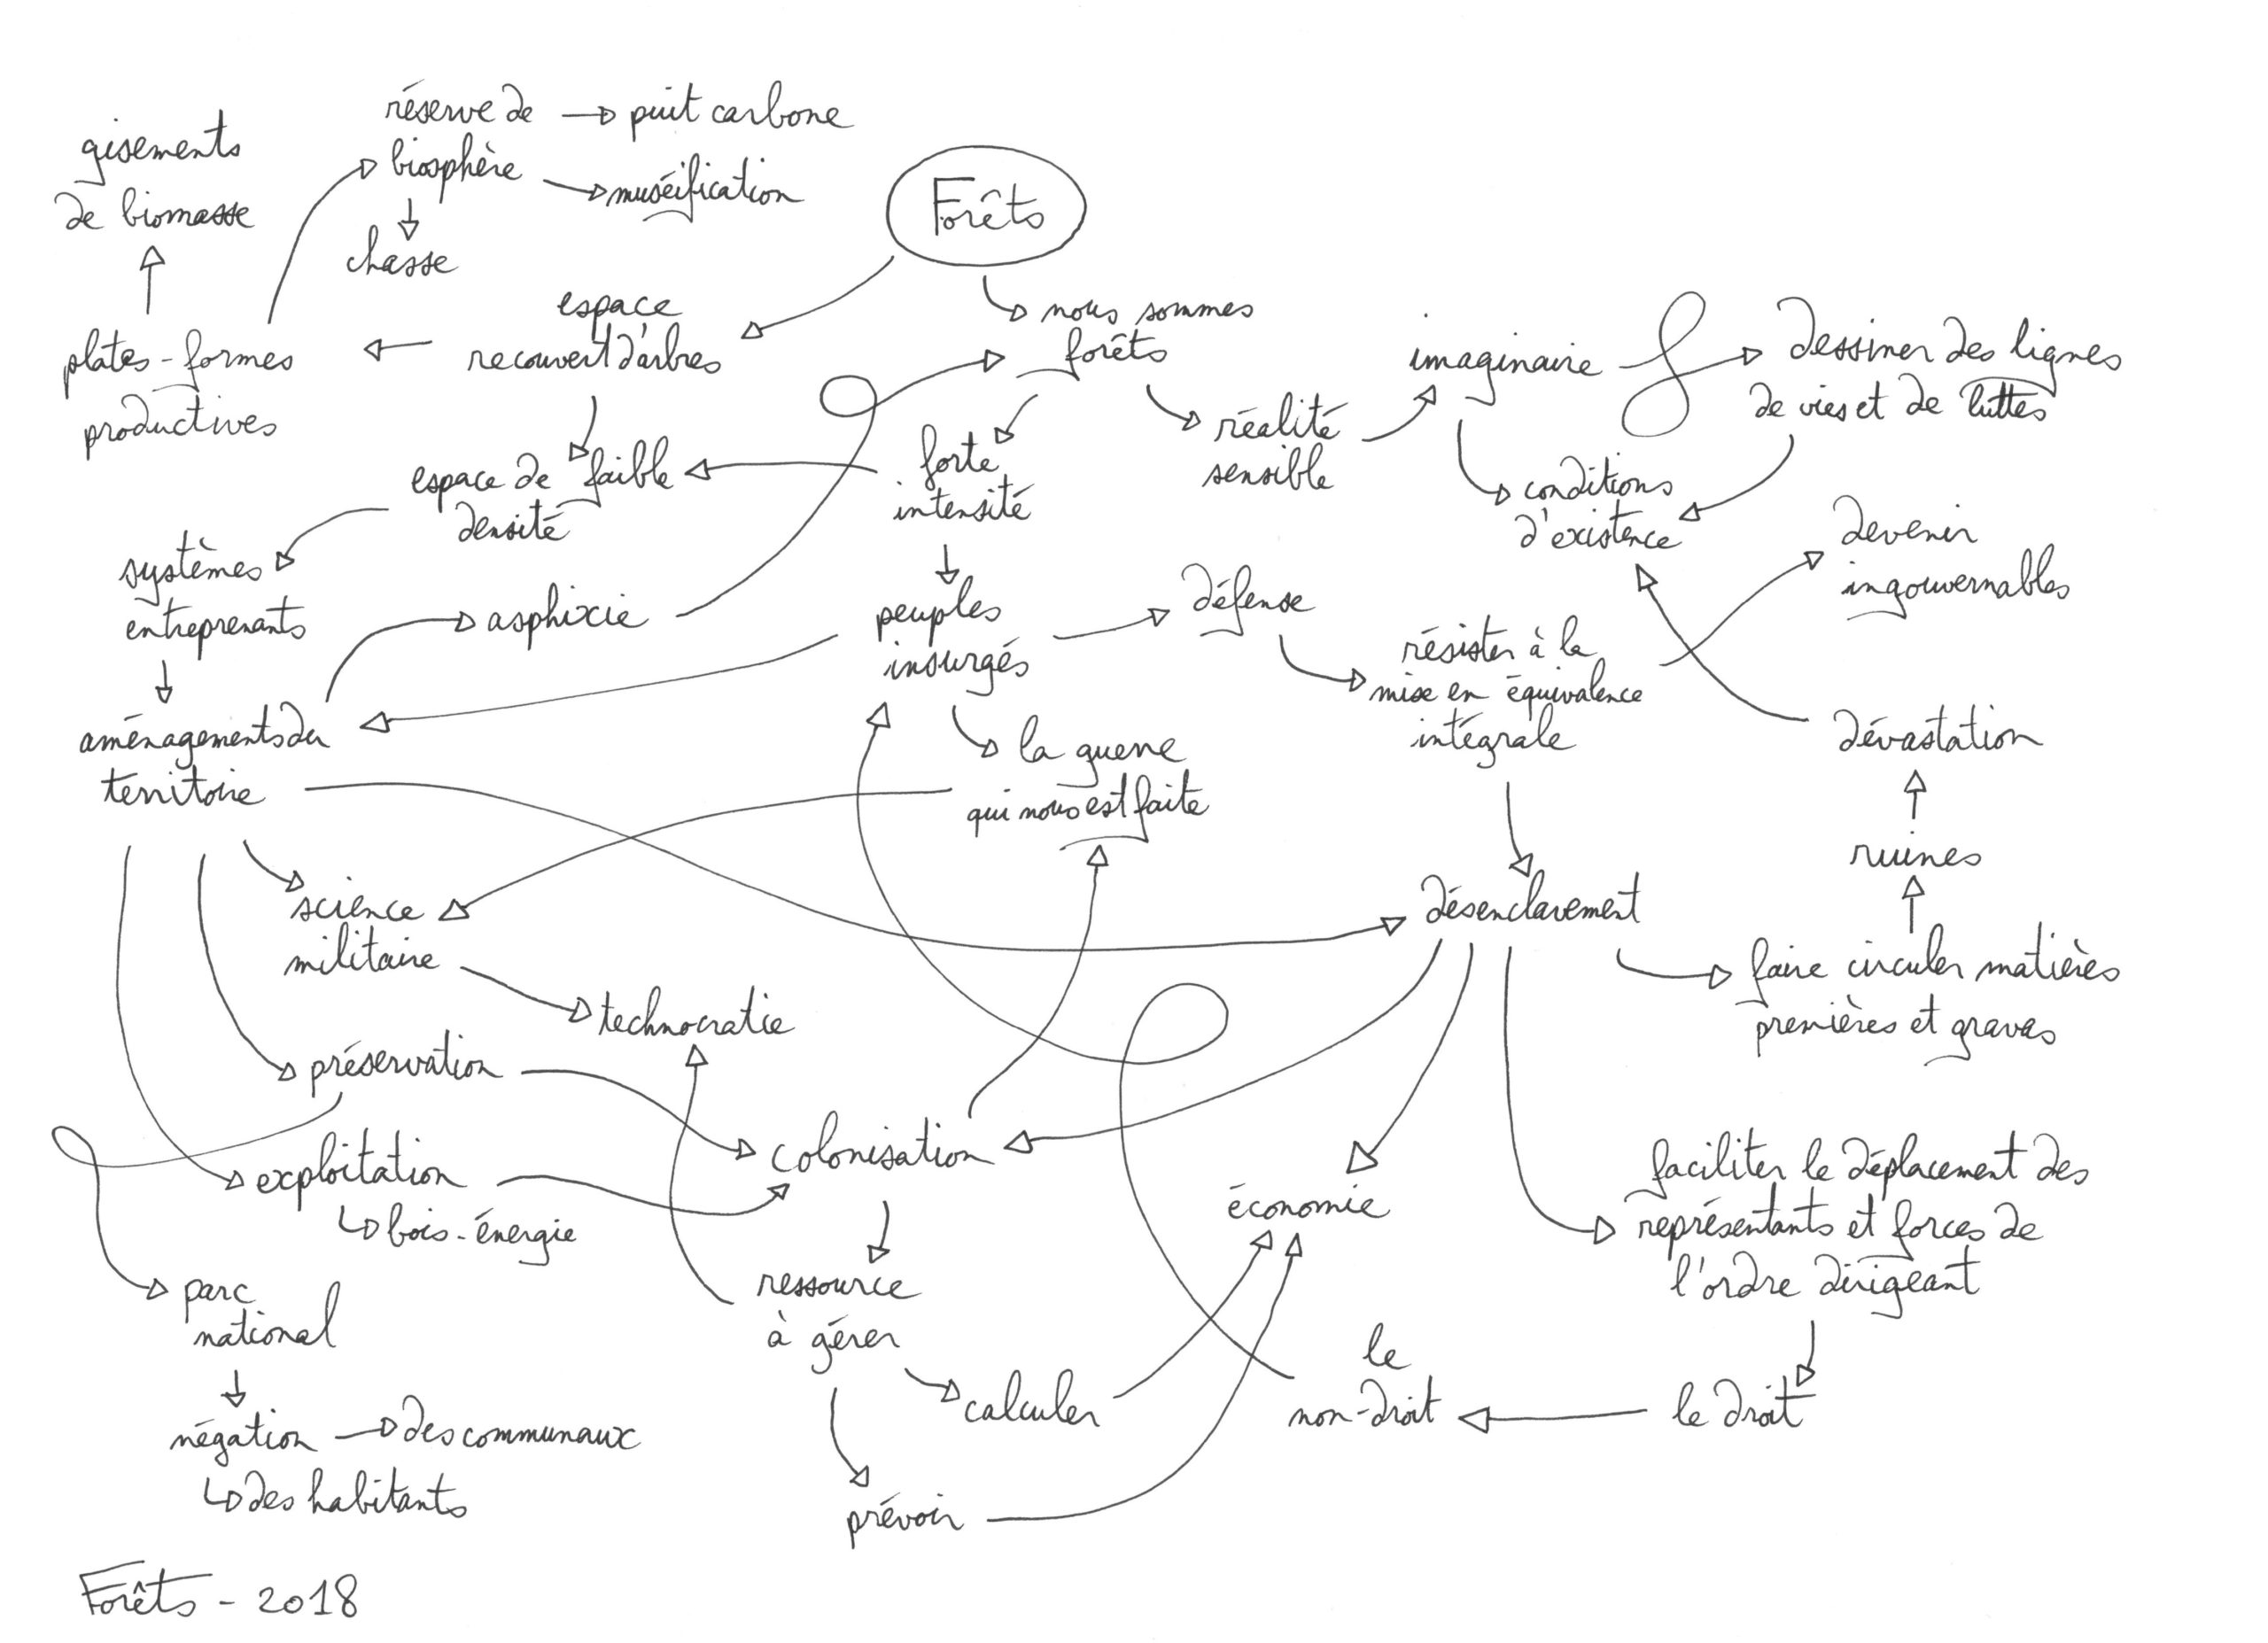 Forêts
réserve de
biosphère
puit carbone
muséification
chasse
gisements
de biomasse
plates-formes
productives
espace
recouvert d'arbres
nous sommes
forêts
espace de faible
densité
forte
intensité
réalité
sensible
imaginaire
dessiner des lignes
de vies et de luttes
conditions
d'existence
devenir
ingouvernables
systèmes
entreprenants
asphixie
peuples
insurgés
défense
résister à la
mise en équivalence
intégrale
aménagements du
territoire
la guerre
qui nous est faite
dévastation
ruines
science
militaire
désenclavement
faire circuler matières
premières et gravas
technocratie
préservation
colonisation
exploitation
bois-énergie
économie
faciliter le déplacement des
représentants et forces de
l'ordre dirigeant
parc
national
ressource
à gérer
calculer
le
non-droit
le droit
négation
des communaux
des habitants
prévoir
Forêts - 2018